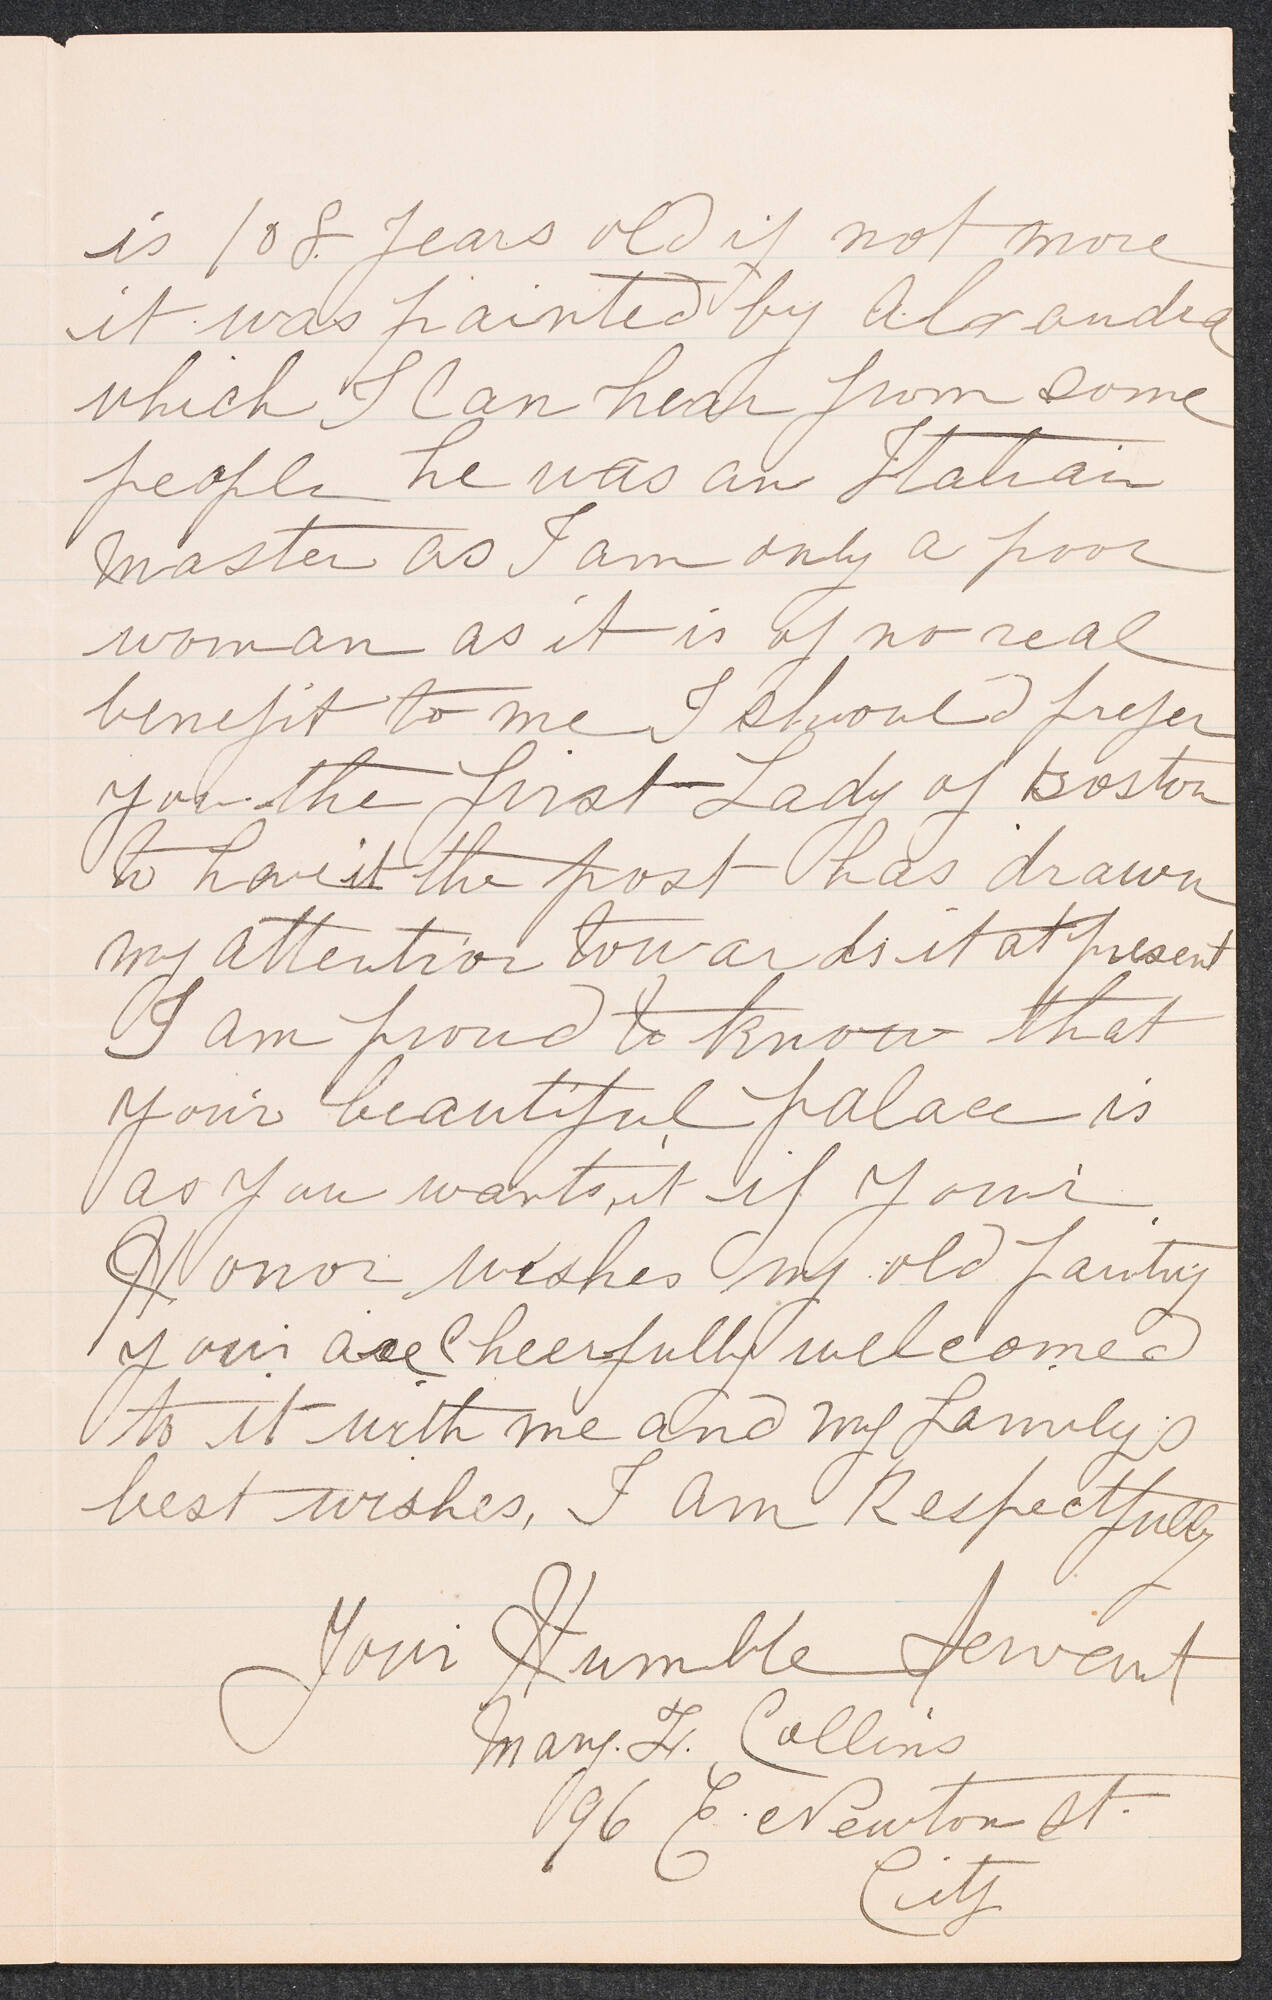 is 108. years old if not more
it was painted by Alexandra
which I Can hear from some
people he was an Italiain
Master as I am only a poor
woman as it is of no real
benefit to me I shwould prefer
you the first Lady of Boston
to have it the post has drawn
my attention towards it at present
I am proud to know that
your beautiful palace is
as you wants it if your
Honor wishes my old painting
your are Cheerfully welcomed
to it with me and my family,s
best wishes, I am Respectfully
Your Humble Servent
Mary. F. Collins
96 E. Newton St.
City